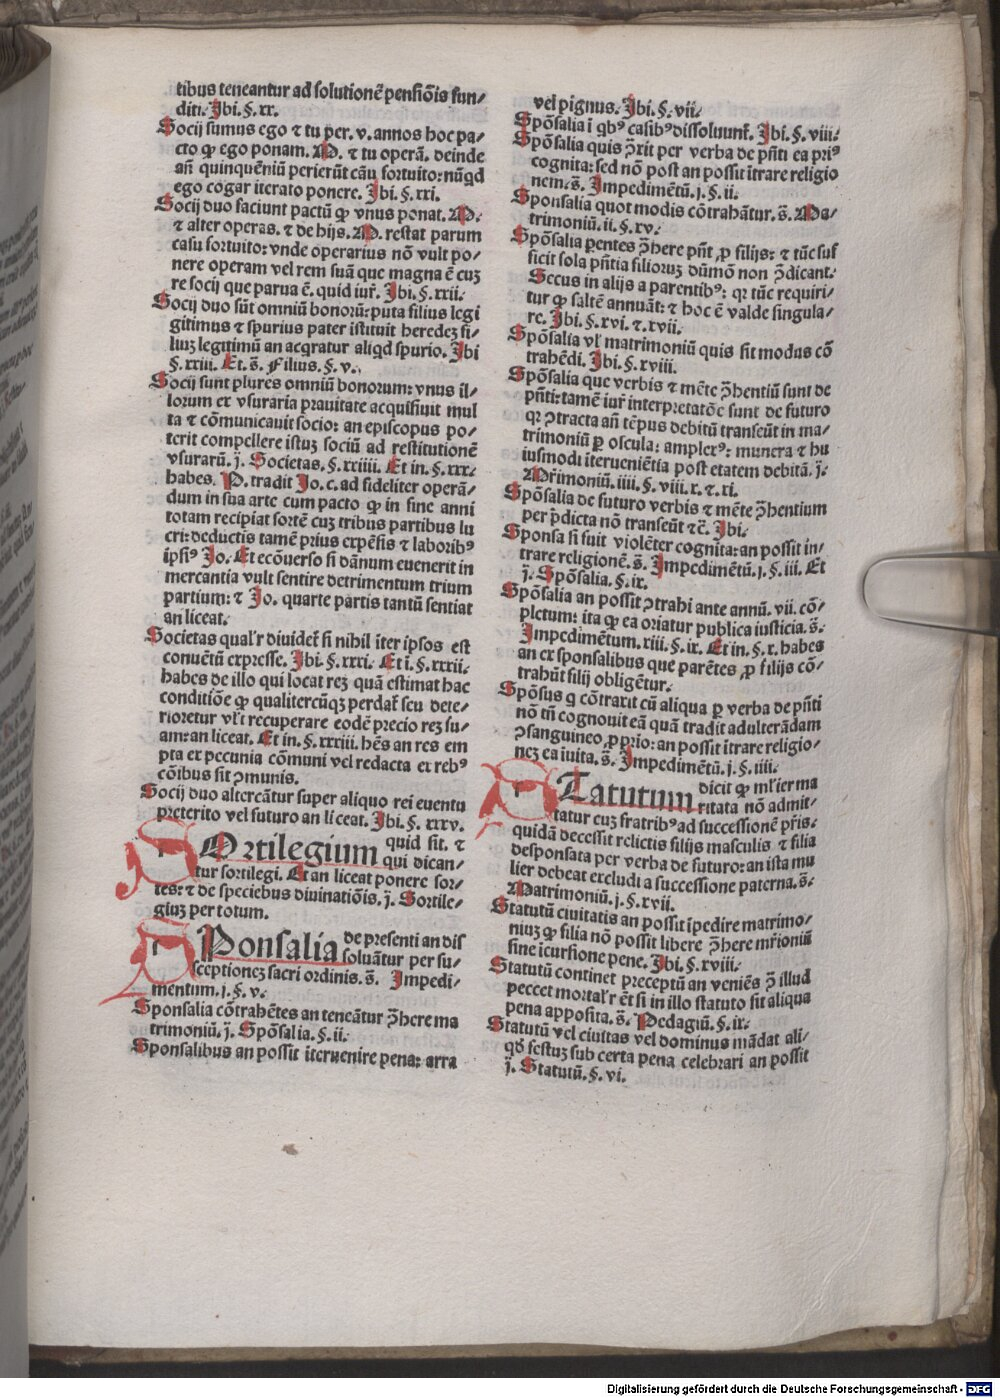 tibus teneantur ad solutionẽ pensiõis fun/
diti. Ibi. §. xx.
Socij sumus ego ⁊ tu per. v. annos hoc pa/
cto ꝙ ego ponam. M. ⁊ tu operã. deinde
añ quinquẽniũ perierũt cãu fortuito: nũqd
ego cogar iterato ponere. Ibi. §. xxi.
Socij duo faciunt pactũ ꝙ vnus ponat. M.
⁊ alter operas. ⁊ de hijs. M. restat parum
casu fortuito: vnde operarius nõ vult po/
nere operam vel rem suã que magna ẽ cuz
re socij que parua ẽ. quid iur̃. Ibi. §. xxii.
Socij duo sũt omniũ bonorũ: puta filius legi
gitimus ⁊ spurius pater istituit heredez fi/
liuz legitimũ an acqratur aliqd spurio. Ibi
§. xxiii. Et. s̃. Filius. §. v.
Socij sunt plures omniũ bonorum: vnus il/
lorum ex vsuraria prauitate acquisiuit mul
ta ⁊ cõmunicauit socio: an episcopus po/
terit compellere istuz sociũ ad restitutionẽ
vsurarũ. j̃. Societas. §. xxiiii. Et in. §. xxx.
habes. P. tradit Jo. c. ad fideliter operã/
dum in sua arte cum pacto ꝙ in fine anni
totam recipiat sortẽ cuz tribus partibus lu
cri: deductis tamẽ prius expẽsis ⁊ laboribꝰ
ipsiꝰ Jo. Et ecõuerso si dãnum euenerit in
mercantia vult sentire detrimentum trium
partium: ⁊ Jo. quarte partis tantũ sentiat
an liceat.
Societas qual'r diuidet̃ si nihil iter ipsos est
conuẽtũ expresse. Ibi. §. xxxi. Et ĩ. §. xxxii.
habes de illo qui locat rez quã estimat hac
conditiõe ꝙ qualitercũqz perdat̃ seu dete/
rioretur vl't recuperare eodẽ precio rez su/
am: an liceat. Et in. §. xxxiii. hẽs an res em
pta ex pecunia cõmuni vel redacta ex rebꝰ
cõibus sit ꝯmunis.
Socij duo altercãtur super aliquo rei euentu
preterito vel futuro an liceat. Ibi. §. xxxv.
SOrtilegium quid sit. ⁊
qui dican/
tur sortilegi. Et an liceat ponere sor/
tes: ⁊ de speciebus diuinatiõis. j̃. Sortile/
giuz per totum.
SPonsalia de presenti an dis
soluãtur per su/
sceptionez sacri ordinis. s̃. Impedi/
mentum. j. §. v.
Sponsalia cõtrahẽtes an teneãtur ꝯ̃here ma
trimoniũ. j̃. Spõsalia. §. ii.
Sponsalibus an possit iteruenire pena: arra
vel pignus. Ibi. §. vii.
Spõsalia ĩ qbꝰ casibꝰ dissoluunt̃. Ibi. §. viii.
Spõsalia quis ꝯ̃xit per verba de pñti ea priꝰ
cognita: sed nõ post an possit ĩtrare religio
nem. s̃. Impedimẽtũ. j. §. ii.
Sponsalia quot modis cõtrahãtur. s̃. Ma/
trimoniũ. ii. §. xv.
Spõsalia ꝑentes ꝯ̃here pñt ꝓ filijs: ⁊ tũc suf
ficit sola pñtia filioruz dũmõ non ꝯ̃dicant.
Secus in alijs a parentibꝰ: qꝛ tũc requiri/
tur ꝙ saltẽ annuãt: ⁊ hoc ẽ valde singula/
re. Ibi. §. xvi. ⁊. xvii.
Spõsalia vl' matrimoniũ quis sit modus cõ
trahẽdi. Ibi. §. xviii.
Spõsalia que verbis ⁊ mẽte ꝯ̃hentiũ sunt de
pñti: tamẽ iur̃ interpretatõe sunt de futuro
qꝛ ꝯtracta añ tẽpus debitũ transeũt in ma/
trimoniũ ꝑ oscula: amplexꝰ: munera ⁊ hu
iusmodi iterueniẽtia post etatem debitã. j̃.
Mr̃imoniũ. iiii. §. viii. x. ⁊. xi.
Spõsalia de futuro verbis ⁊ mẽte ꝯ̃hentium
per p̃dicta nõ transeũt ⁊c̃. Ibi.
Sponsa si fuit violẽter cognita: an possit in/
trare religionẽ. s̃. Impedimẽtũ. j. §. iii. Et
j̃. Spõsalia. §. ix.
Spõsalia an possit ꝯtrahi ante annũ. vii. cõ/
pletum: ita ꝙ ea oriatur publica iusticia. s̃.
Impedimẽtum. xiii. §. ix. Et in. §. x. habes
an ex sponsalibus que parẽtes ꝓ filijs cõ/
trahũt filij obligẽtur.
Spõsus q cõtraxit cũ aliqua ꝑ verba de pñti
nõ tñ cognouit eã quã tradit adulterãdam
ꝯsanguineo ꝓprio: an possit ĩtrare religio/
nez ea iuita. s̃. Impedimẽtũ. j. §. iiii.
STatutum dicit ꝙ ml'ier ma
ritata nõ admit/
tatur cuz fratribꝰ ad successionẽ pr̃is.
quidã decessit relictis filijs masculis ⁊ filia
desponsata per verba de futuro: an ista mu
lier debeat excludi a successione paterna. s̃.
Matrimoniũ. j. §. xvii.
Statutũ ciuitatis an possit ĩpedire matrimo/
niuz ꝙ filia nõ possit libere ꝯ̃here mr̃ioniũ
sine icursione pene. Ibi. §. xviii.
Statutũ continet preceptũ an veniẽs ꝯ̃ illud
peccet mortal'r ẽt si in illo statuto sit aliqua
pena apposita. s̃. Pedagiũ. §. ix.
Statutũ vel ciuitas vel dominus mãdat ali/
qð festuz sub certa pena celebrari an possit
j̃. Statutũ. §. vi.
Digitalisierung gefördert durch die Deutsche Forschungsgemeinschaft - DFG